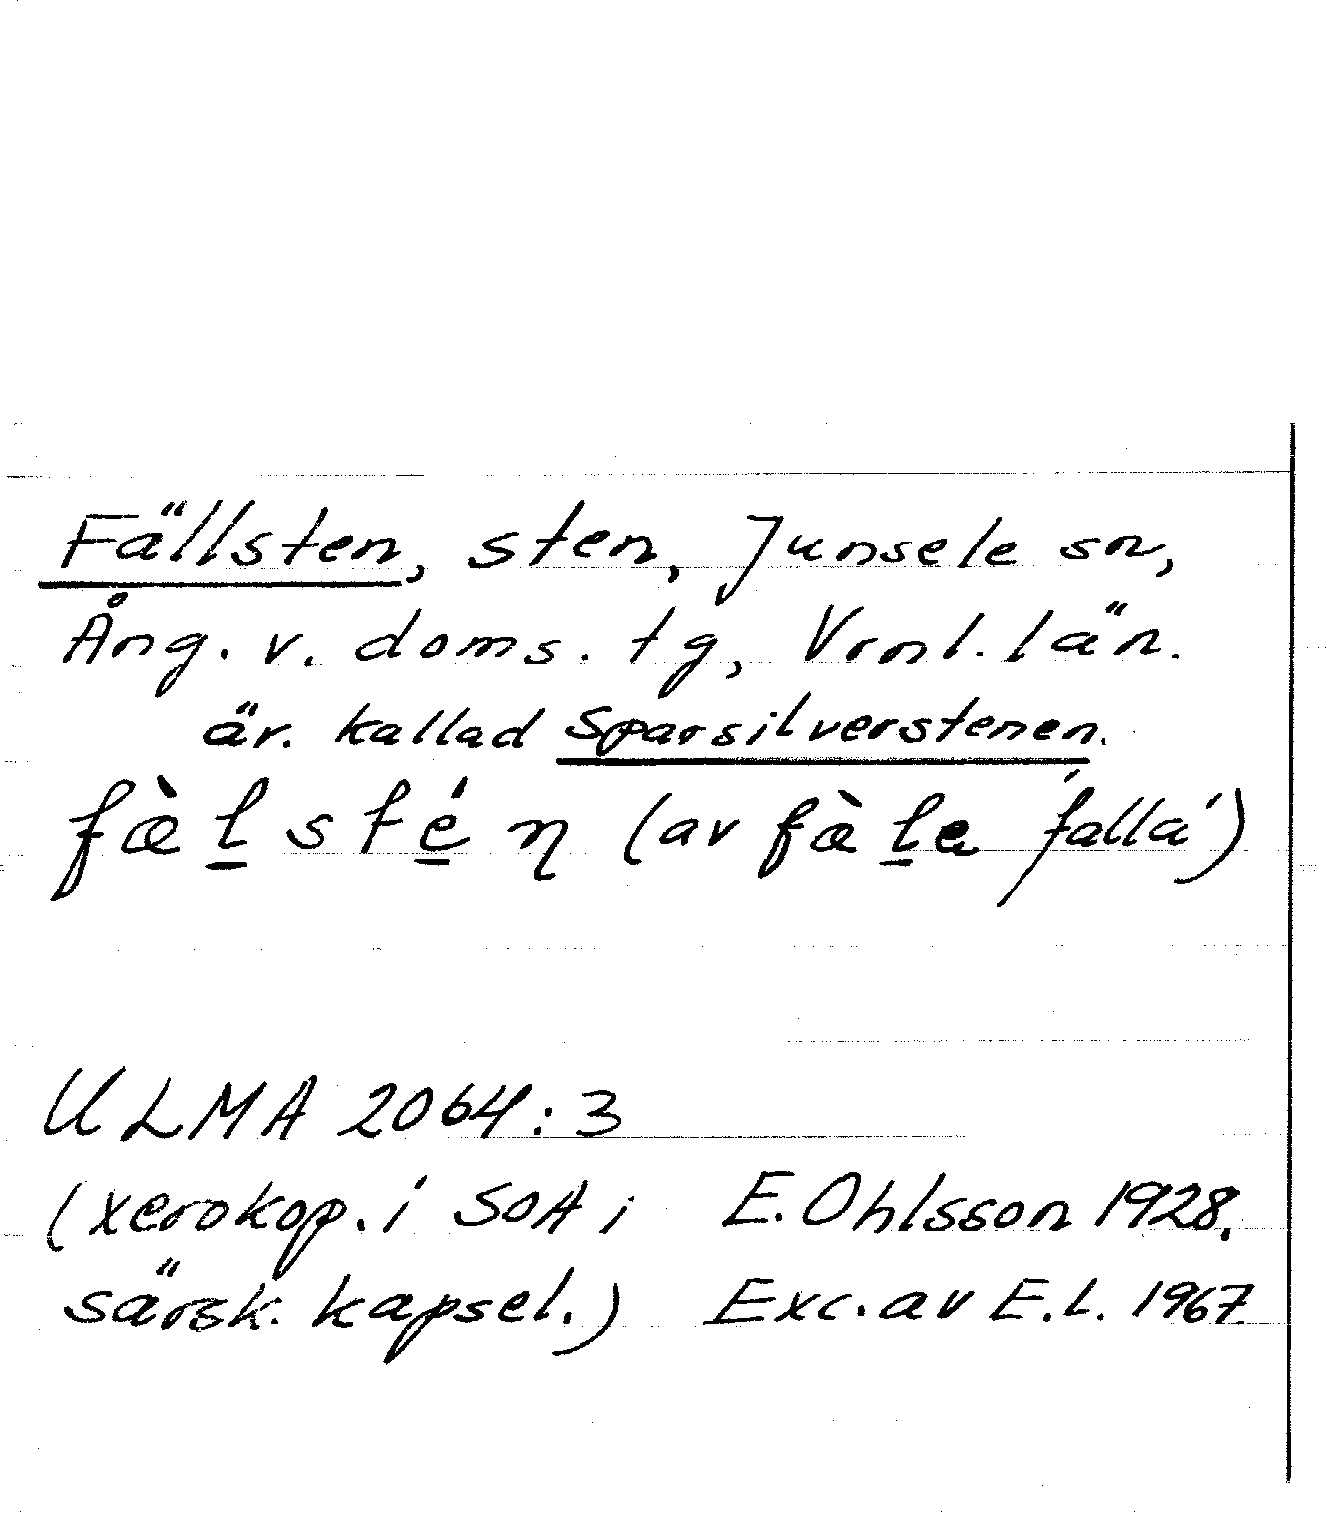 Fällsten, sten, Junsele sn,
Ång. v. doms. tg, Vrnl. län.
är. kallad Sparsilverstenen.
fæ̀l̲sté̲n (av fæ̀l̲a ’falla’)
ULMA 2064:3
(xerokop. i SOA i E. Ohlsson 1928.
särsk. kapsel.) Exc. av E.L. 1967